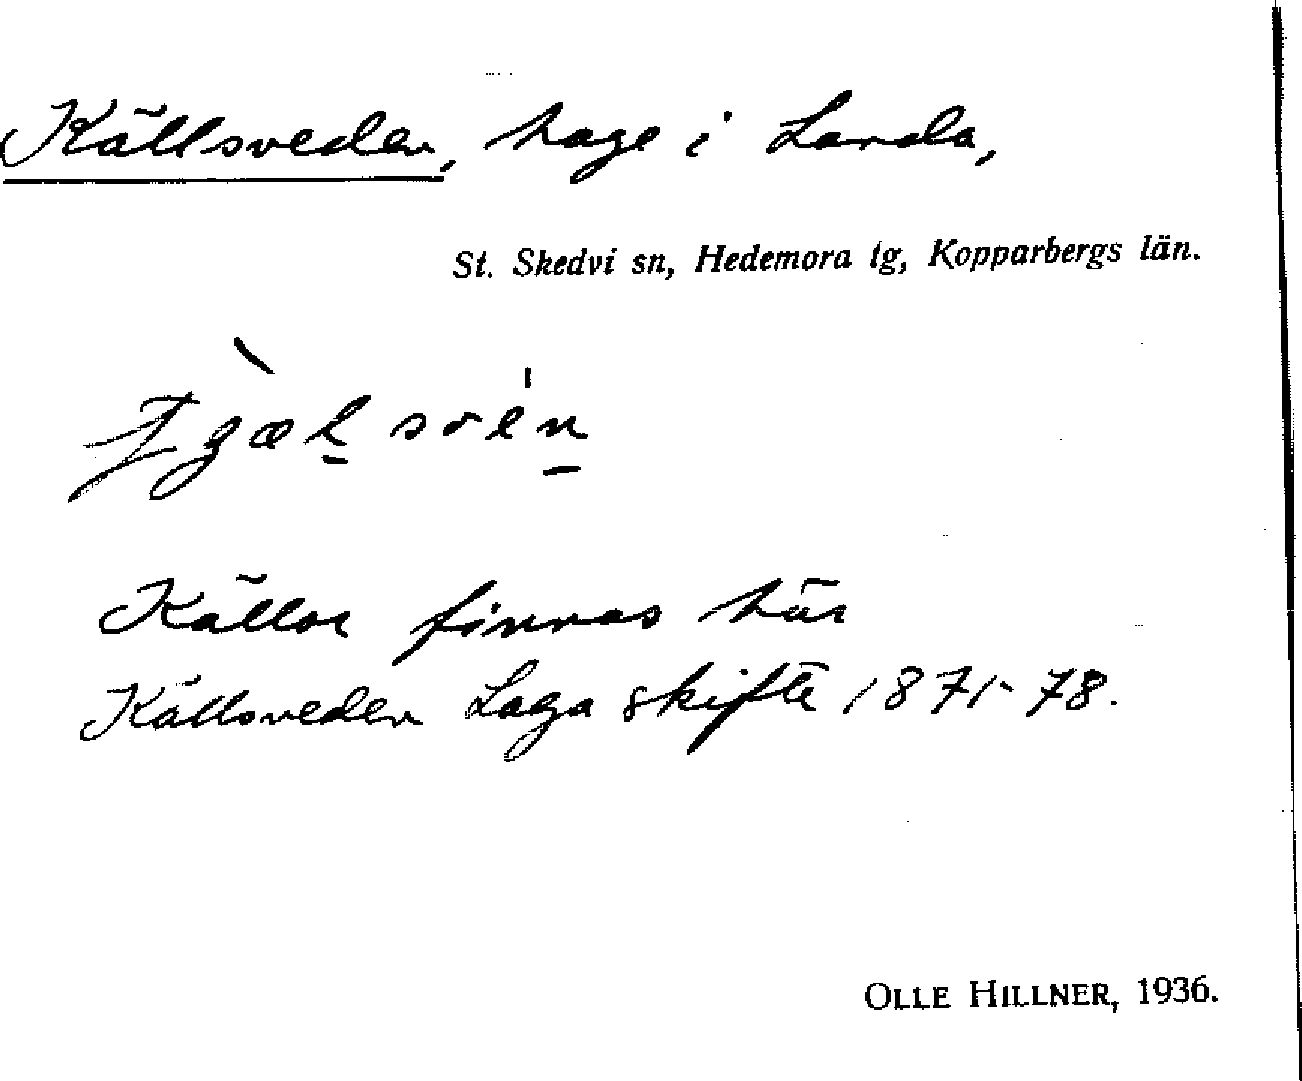 Källsveden, hage i Landa,
St. Skedvi sn, Hedemora tg, Kopparbergs län.
Källor finnas här
Källsveden Laga skifte 1871-78.
OLLE HILLNER, 1936.